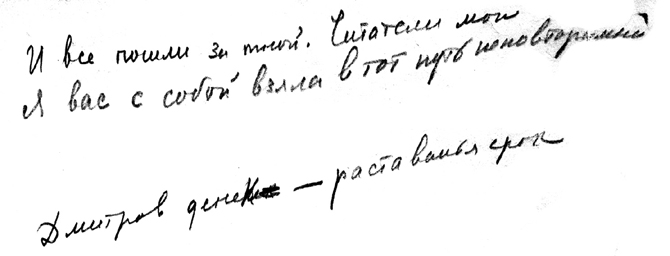 И все пошли за мной. Читатели мои
Я вас с собой взяла в тот путь неповторимый
Дмитров денек — раставанья срок